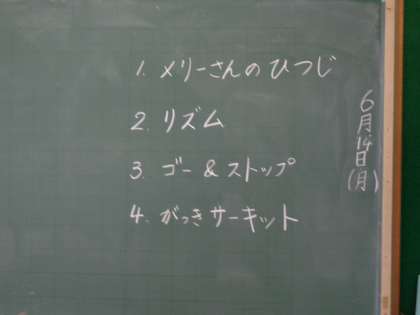 1. メリーさんのひつじ
2. リズム
3. ゴー&ストップ
4. がっきサーキット
6月14日(月)